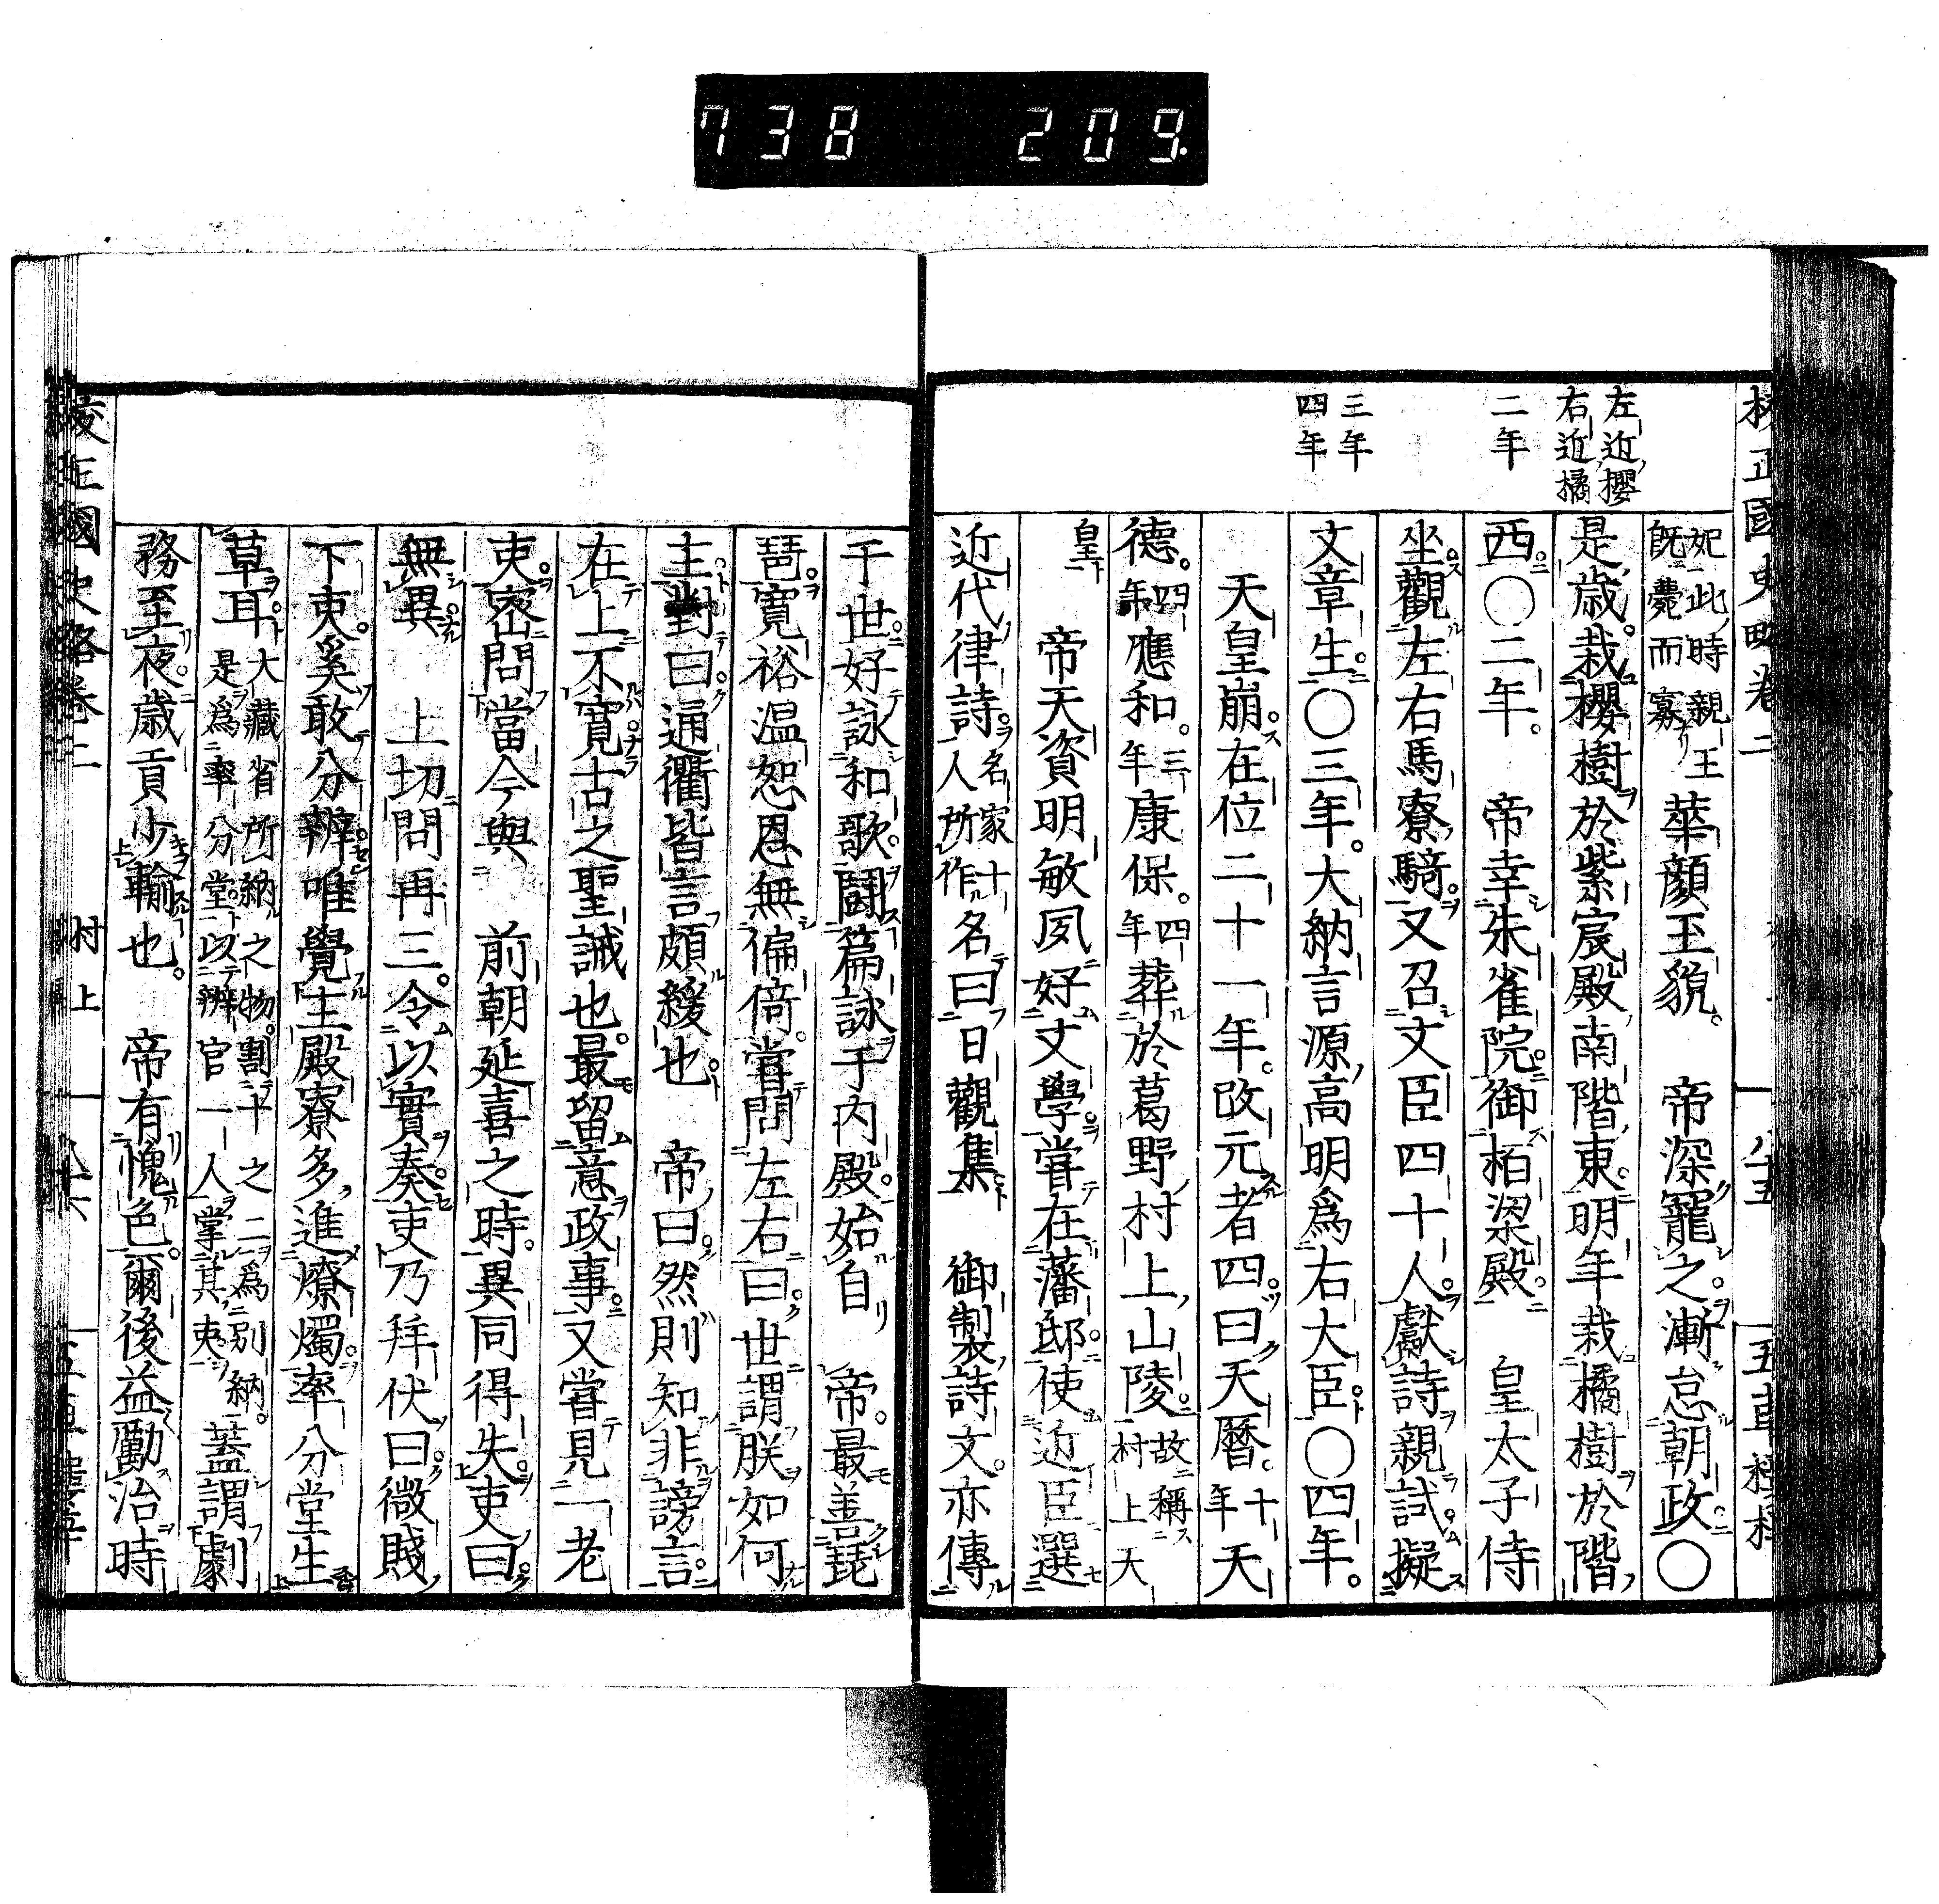 738 209.
校正國史略卷二
八十五
五車樓梓
左近櫻
右近橘
二年
三年
四年
妃此時親王
既薨而寡
華顏玉貌。 帝深寵之。漸怠朝政〇
是歳。栽櫻樹於紫宸殿南階東。明年栽橘樹於階
西。〇二年。 帝幸朱雀院。御栢梁殿。 皇太子侍
坐。觀左右馬寮騎。又召文臣四十人。獻詩親試。擬
文章生。〇三年。大納言源高明爲右大臣。〇四年。
天皇崩。在位二十一年。改元者四。曰天曆。十年天
德。四年應和。三年康保。四年葬於葛野村上山陵。故稱村上天
皇 帝天資明敏夙好文學。嘗在藩邸。使近臣選
近代律詩。名家十人所作名曰日觀集 御製詩文。亦傳
于世。好詠和歌。鬪篇詠于内殿。始自 帝。最善琵
琶。寛裕温恕恩無偏倚。嘗問左右曰。世謂朕如何
主。對曰。通衢皆言頗緩也。 帝曰。然則知非謗言。
在上不寛。古之聖誡也。最留意政事。又嘗見一老
吏。密問當今與 前朝延喜之時。異同得失。吏曰。
無異。 上切問再三。令以實奏。吏乃拜伏曰。微賤
下吏。奚敢分辨。唯覺主殿寮多進燎燭。率分堂生
草耳。大藏省所納之物。割十之二爲別納。
是爲率分堂。以辨官一人掌其吏。
蓋謂劇
務至夜。歳貢少輸也。 帝有愧色。爾後益勵治時
校正國史略卷二
村上
八十六
五車樓梓